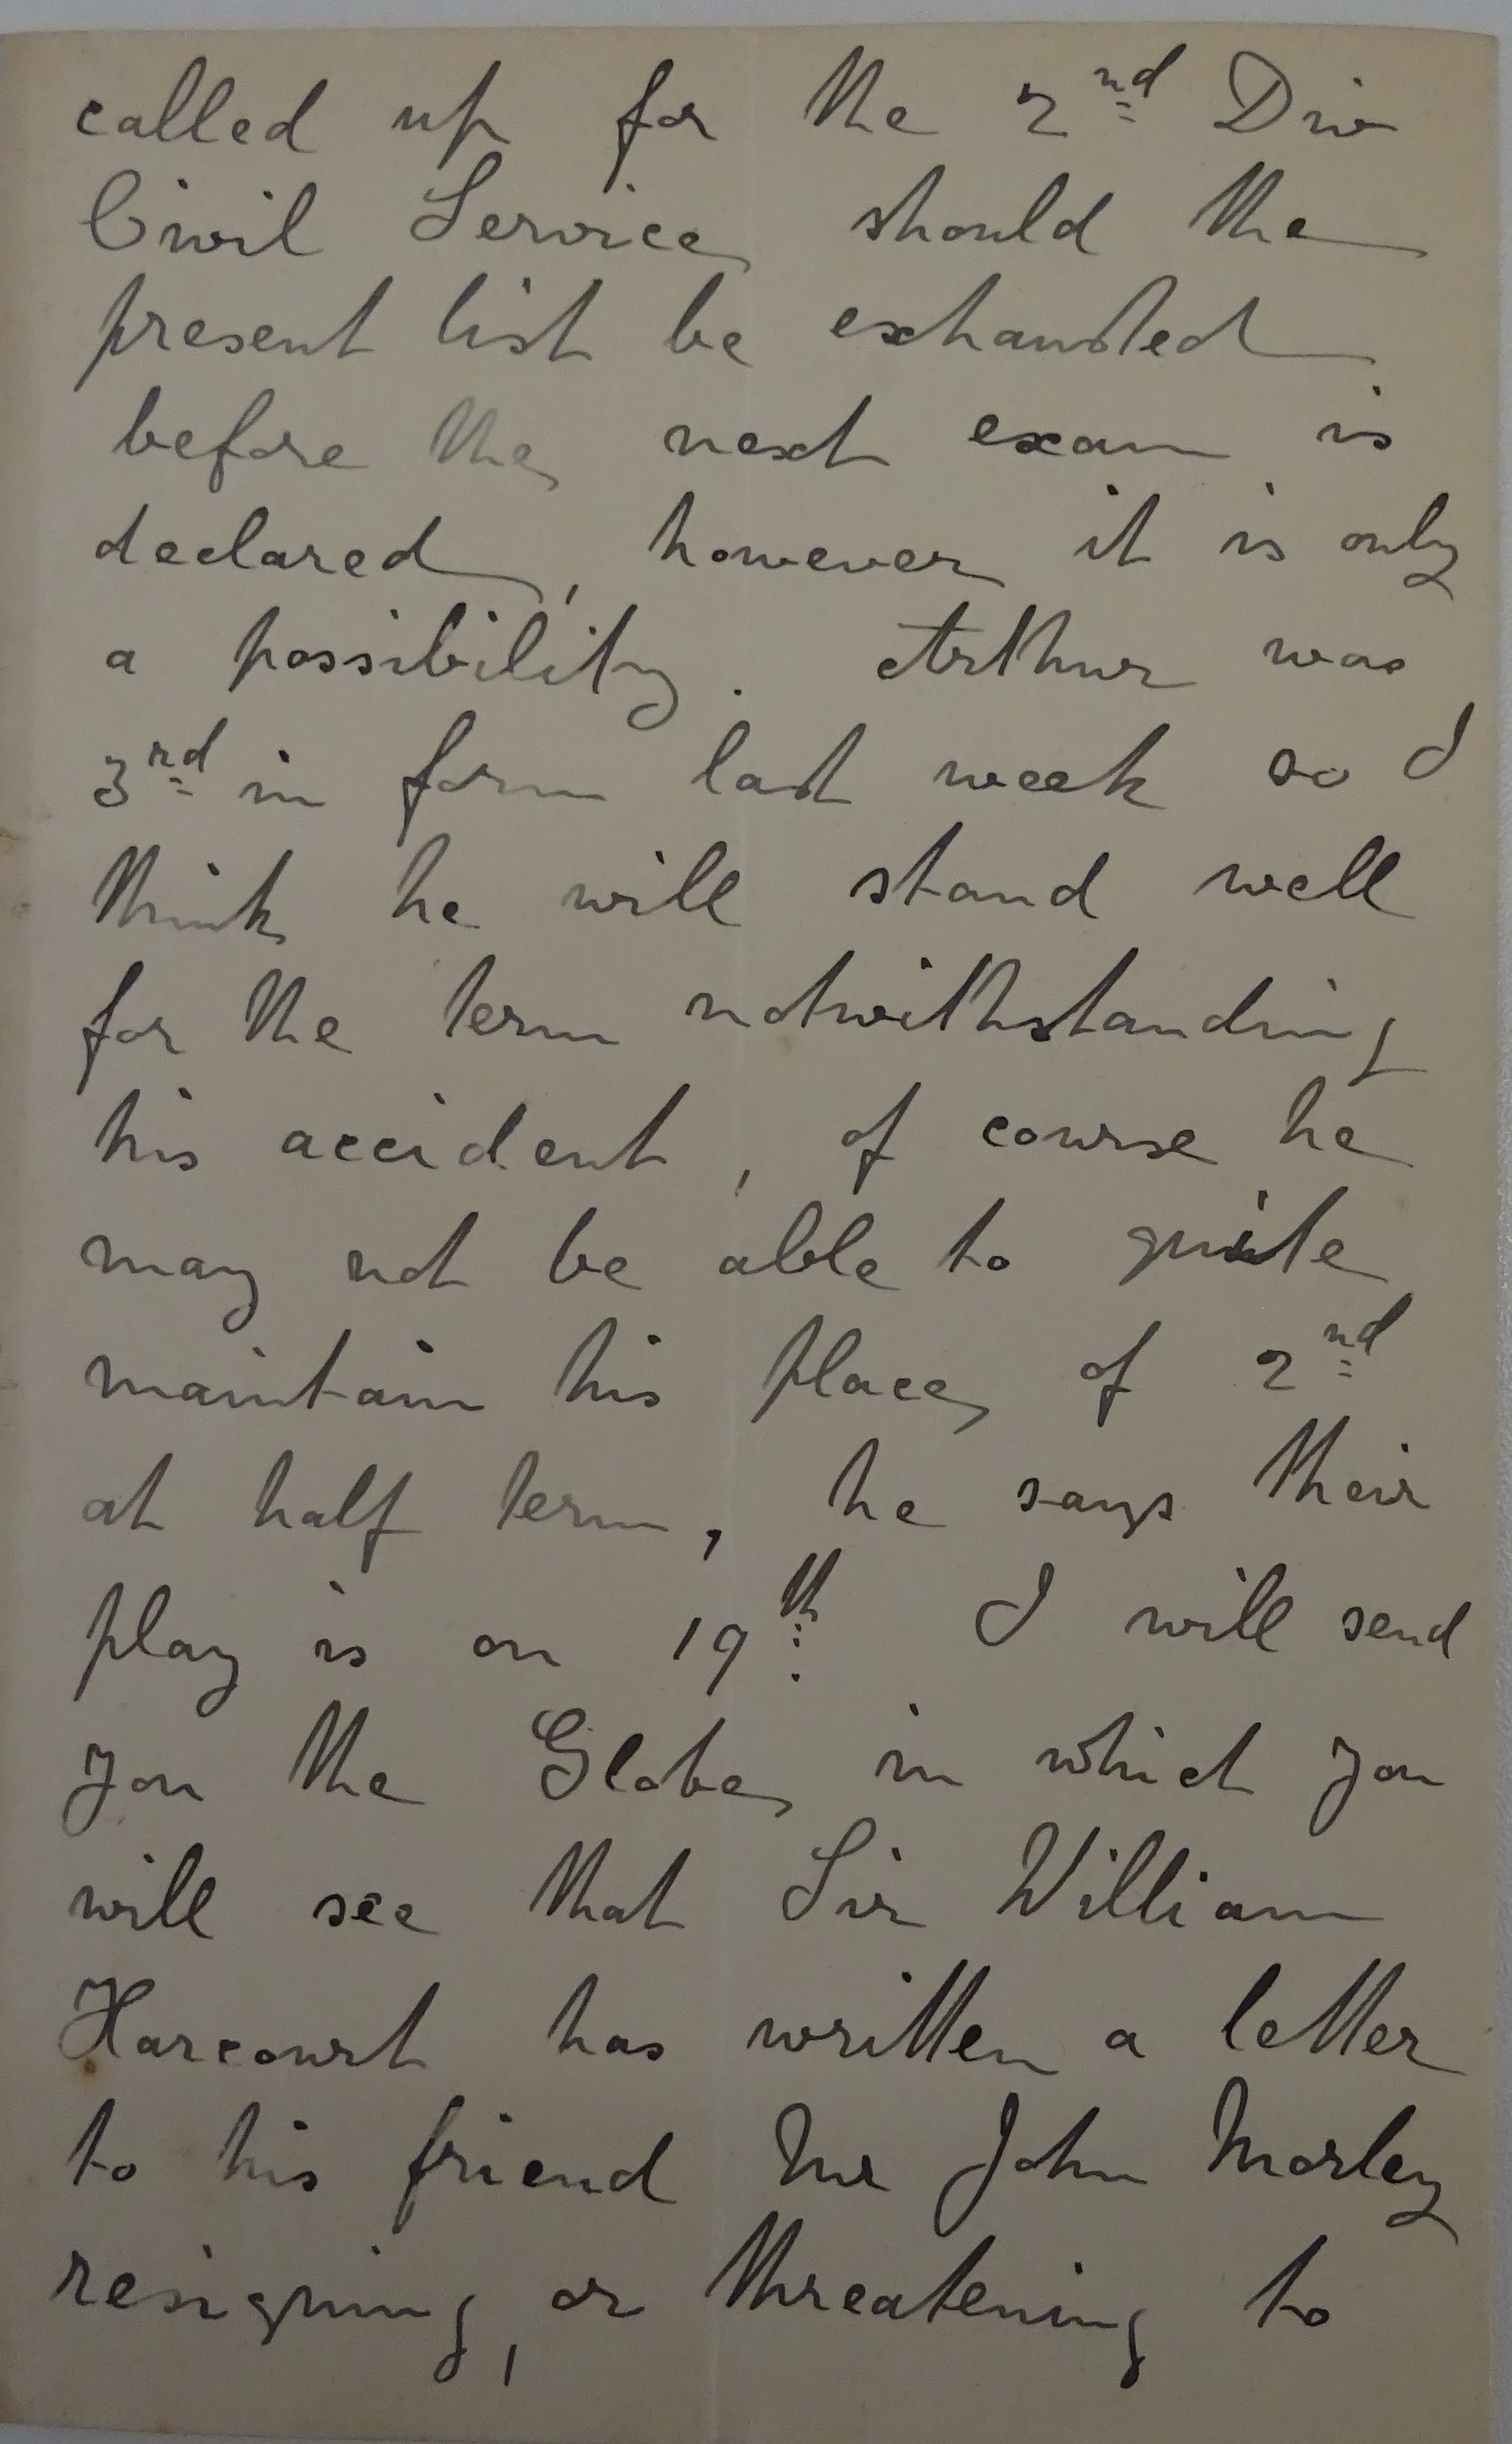 called up for the 2nd Div
Civil Service should the
present list be exhausted
before the next exam is
declared, however it is only
a possibility. Arthur was
3rd in form last week so I
think he will stand well
for the term notwithstanding
his accident, of course he
may not be able to quite
maintain his place of 2nd
at half term, he says their
play is on 19th. I will send
you the Globe in which you
will see that Sir William
Harcourt has written a letter
to his friend Mr John Morley
resigning, or threatening to